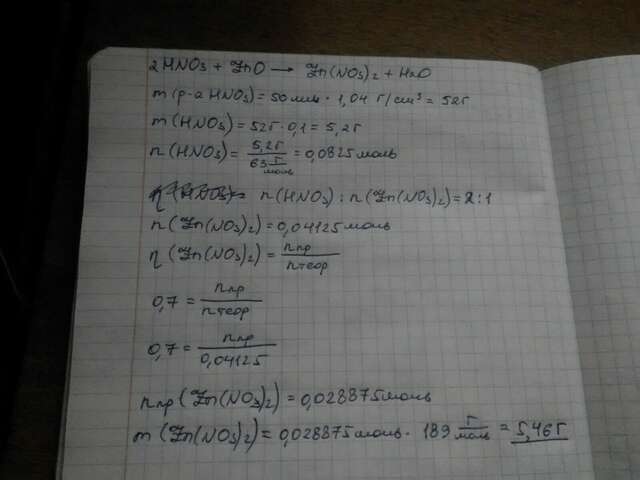 2HNO₃ + ZnO → Zn(NO₃)₂ + H₂O
m(р-а HNO₃) = 50 мл · 1,04 г/см³ = 52г
m(HNO₃) = 52г · 0,1 = 5,2г
n(HNO₃) = 5,2г / 63 г/моль = 0,0825 моль
n(HNO₃) : n(Zn(NO₃)₂) = 2:1
n(Zn(NO₃)₂) = 0,04125 моль
η(Zn(NO₃)₂) = nпр / nтеор
0,7 = nпр / nтеор
0,7 = nпр / 0,04125
nпр(Zn(NO₃)₂) = 0,028875 моль
m(Zn(NO₃)₂) = 0,028875 моль · 189 г/моль = 5,46г